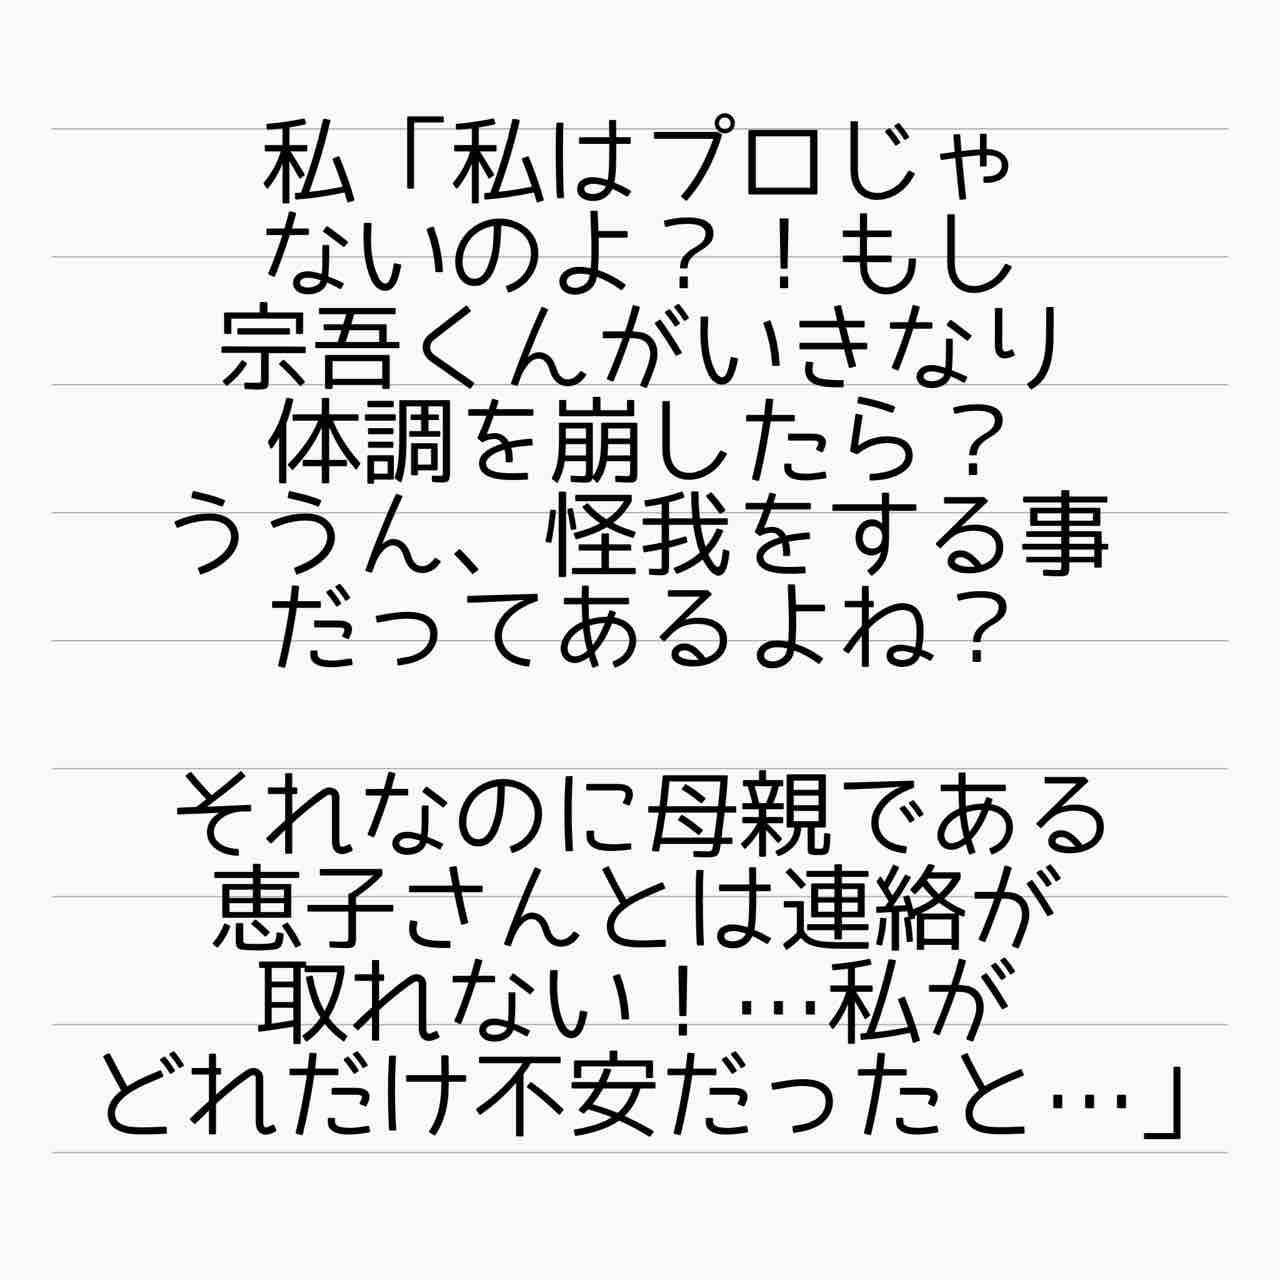 私「私はプロじゃ
ないのよ？！もし
宗吾くんがいきなり
体調を崩したら？
ううん、怪我をする事
だってあるよね？
それなのに母親である
恵子さんとは連絡が
取れない！…私が
どれだけ不安だったと…」